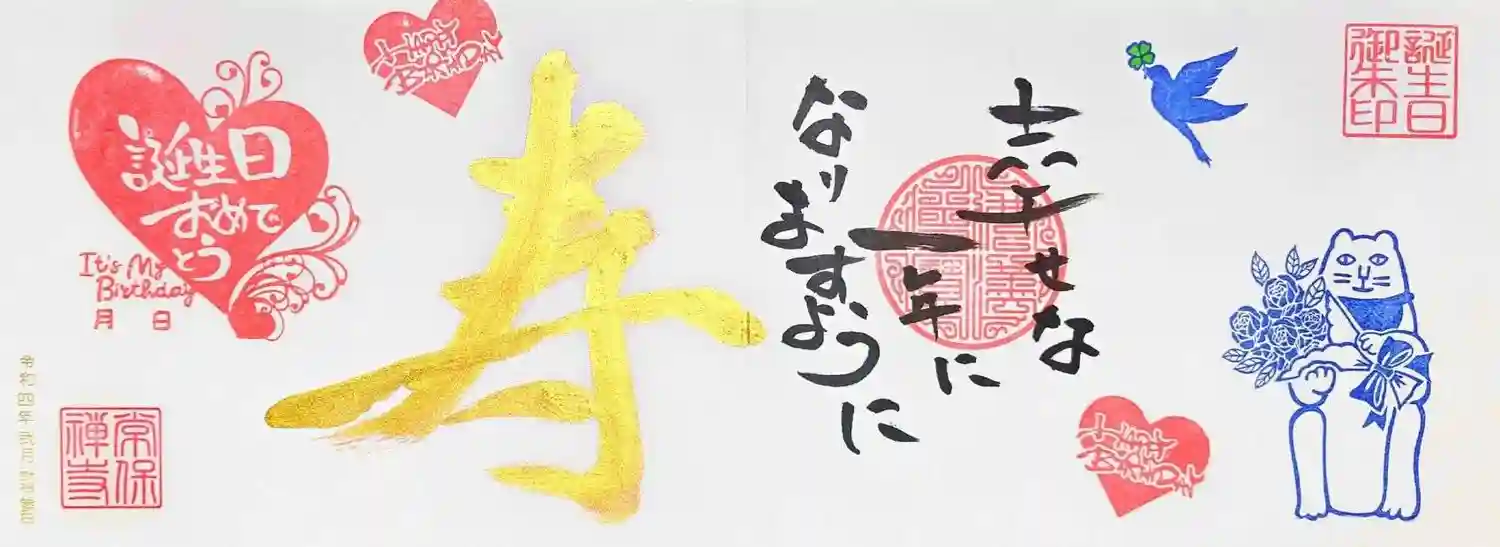 誕生日
御朱印
幸せな
一年に
なり
ますように
HAPPY
BIRTHDAY
寿
HAPPY
BIRTHDAY
誕生日
おめで
とう
It's My
Birthday
月 日
常保
禅寺